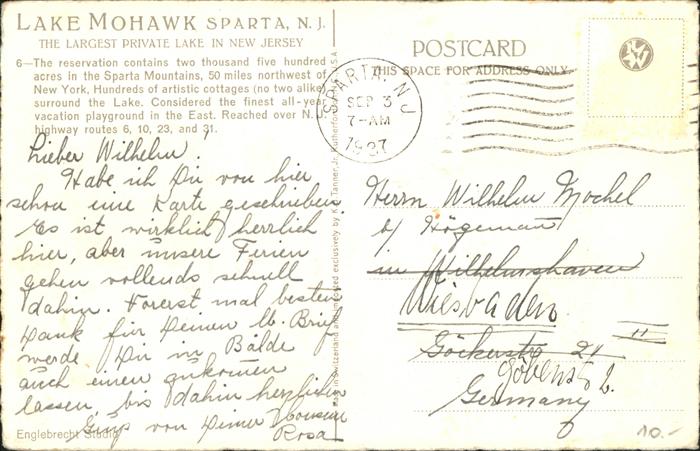 LAKE MOHAWK SPARTA, N. J.
THE LARGEST PRIVATE LAKE IN NEW JERSEY
6—The reservation contains two thousand five hundred
acres in the Sparta Mountains, 50 miles northwest of
New York, Hundreds of artistic cottages (no two alike)
surround the Lake. Considered the finest all-year
vacation playground in the East. Reached over N.
highway routes 6, 10, 23, and 31.
Lieber Wilhelm!
Habe ich Dir von hier
schon eine Karte geschrieben
Es ist wirklich herrlich
hier, aber unsere Ferien
gehen vollends schnell
dahin. Vorerst mal besten
Dank für Deinen lb. Brief
werde Dir in Bälde
auch einen zukommen
lassen, bis dahin herzlichen
Gruß von Deiner Cousine
Rosa
Englebrecht Studio
POSTCARD
THIS SPACE FOR ADDRESS ONLY
SPARTA, N J
SEP 3
7-AM
1937
Herrn Wilhelm Mochel
b/ Högemann
in Wilhelmshaven
Wiesbaden
Göckerstr 21 II
Göbenstr 2.
Germany
10.-